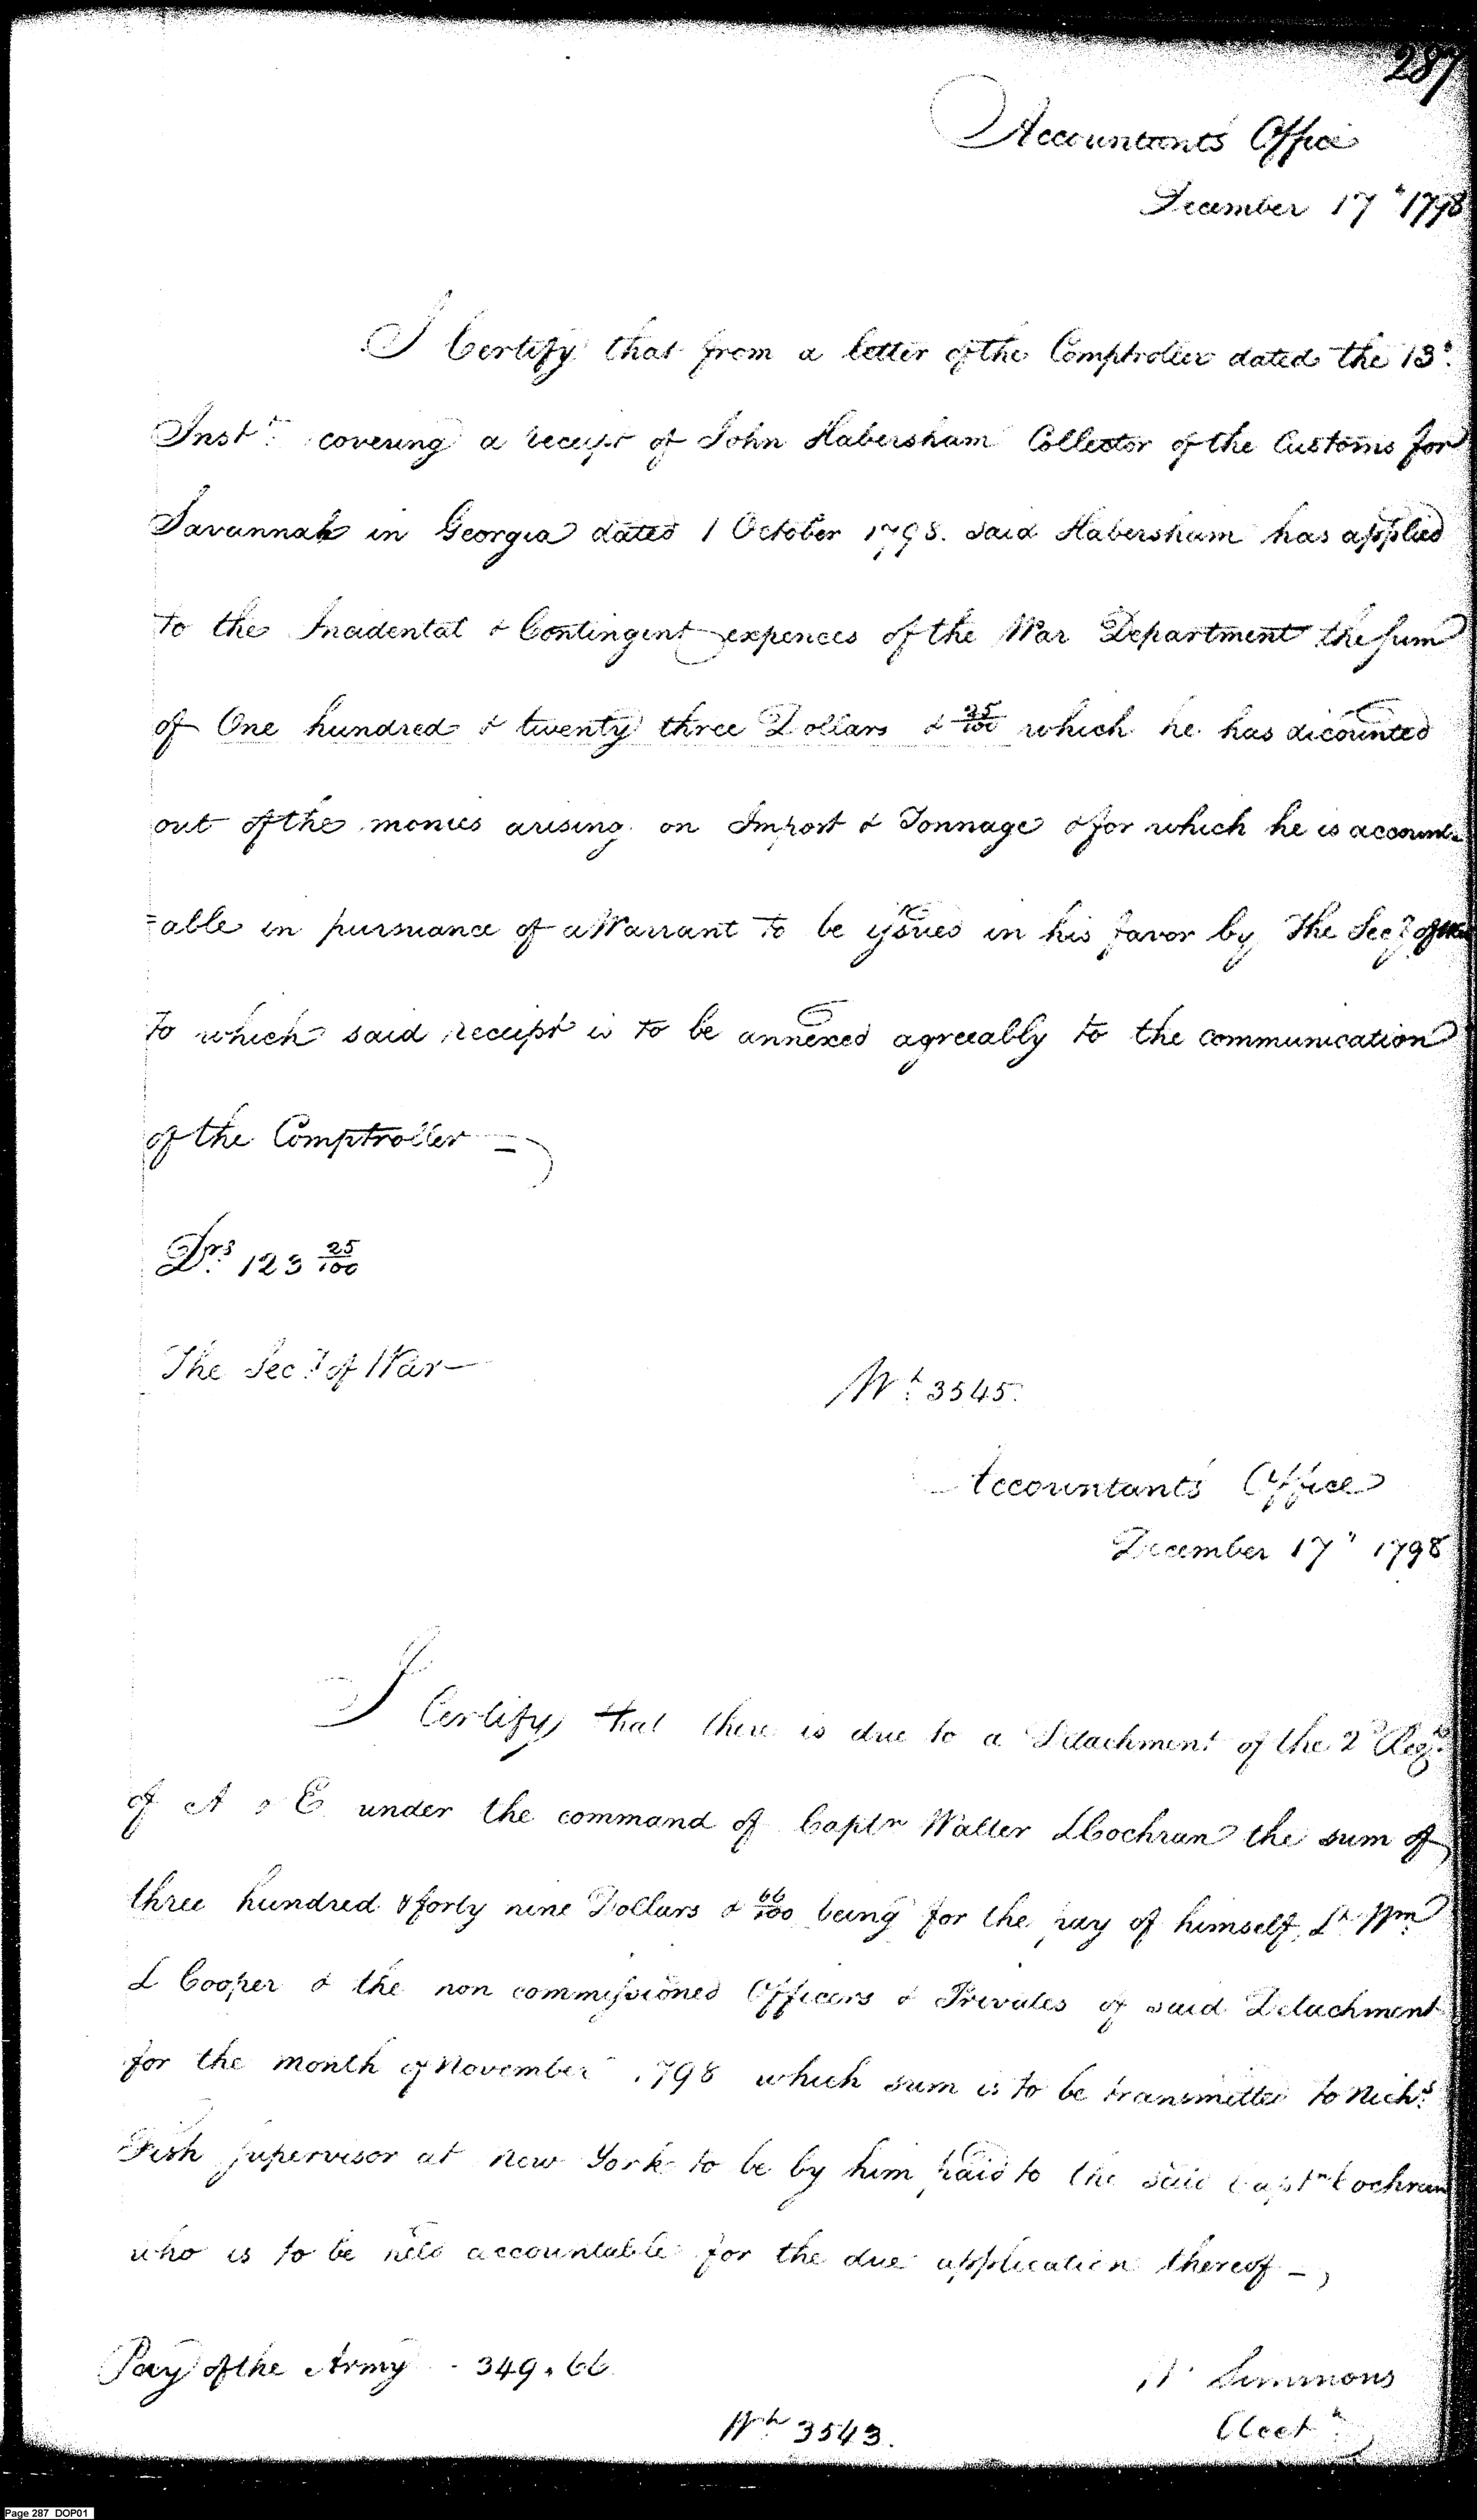 287
Accountants Office
December 17th 1798
I Certify that from a letter of the Comptroller dated the 13th
Instt. covering a receipt of John Habersham Collector of the Customs for
Savannah in Georgia dated 1 October 1798. said Habersham has applied
to the Incidental & Contingent expences of the War Department the sum
of One hundred & twenty three Dollars & 25/100 which he has dicounted
out of the monies arising on Impost & Tonnage & for which he is account=
=able in pursuance of a Warrant to be issued in his favor by The Secy of War
to which said receipt is to be annexed agreeably to the communication
of the Comptroller —
Drs. 123 25/100
The Secy of War —
Wt. 3545.
Accountants Office
December 17" 1798
I Certify that there is due to a Detachment of the 2d Regt.
of A & E under the command of Captn Walter L Cochran the sum of
three hundred & forty nine Dollars & 66/100 being for the pay of himself, Lt. Wm.
L Cooper & the non commissioned Officers & Privates of said Detachment
for the month of November 1798 which sum is to be transmitted to Nichs.
Fish Supervisor at New York to be by him paid to the said Captn Cochran
who is to be held accountable for the due application thereof —
Pay of the Army - 349.66
W Simmons
Wt 3543.
Acct.
Page 287 DOP01